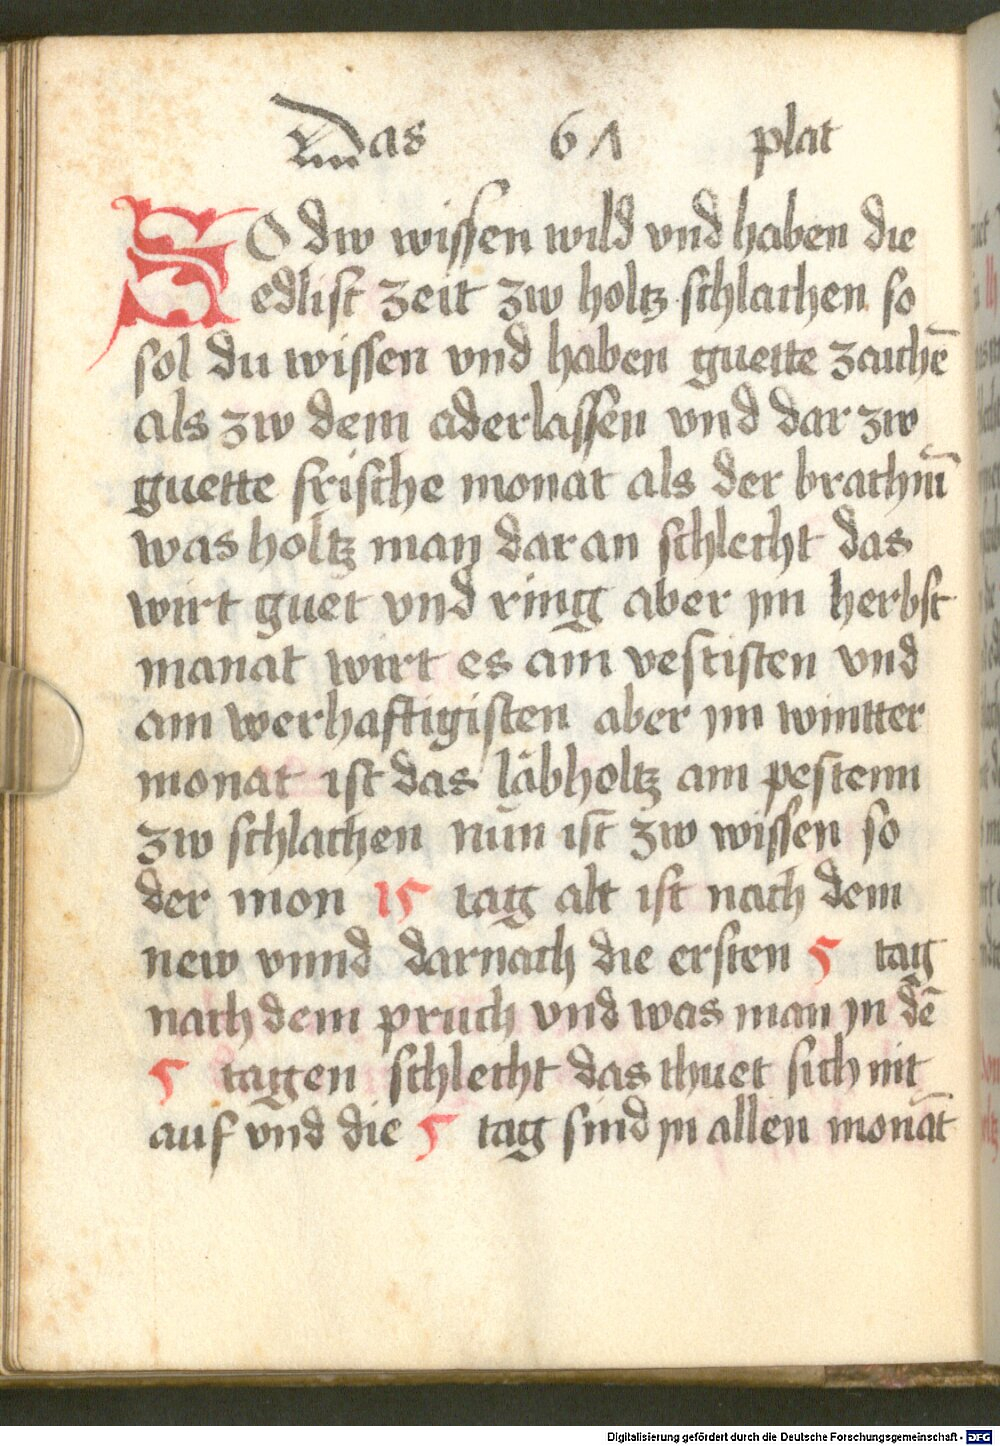 Das 61 plat
SO diw wissen wild vnd haben die
edlist zeit zw holtz schlachen so
sol du wissen vnd haben guette zaichē
als zw dem aderlassen vnd dar zw
guette frische monat als der brachm̄
was holtz man dar an schlecht das
wirt guet vnd ring aber im herbst
manat wirt es am vestisten vnd
am werhaftigisten aber im wintter
monat ist das läbholtz am pestenn
zw schlachen nūn ist zw wissen so
der mon 15 tag alt ist nach dem
new vnnd darnach die ersten 5 tag
nach dem pruch vnd was man in dē
5 tagen schlecht das thuet sich nit
auf vnd die 5 tag sind in allen monāt
Digitalisierung gefördert durch die Deutsche Forschungsgemeinschaft - DFG